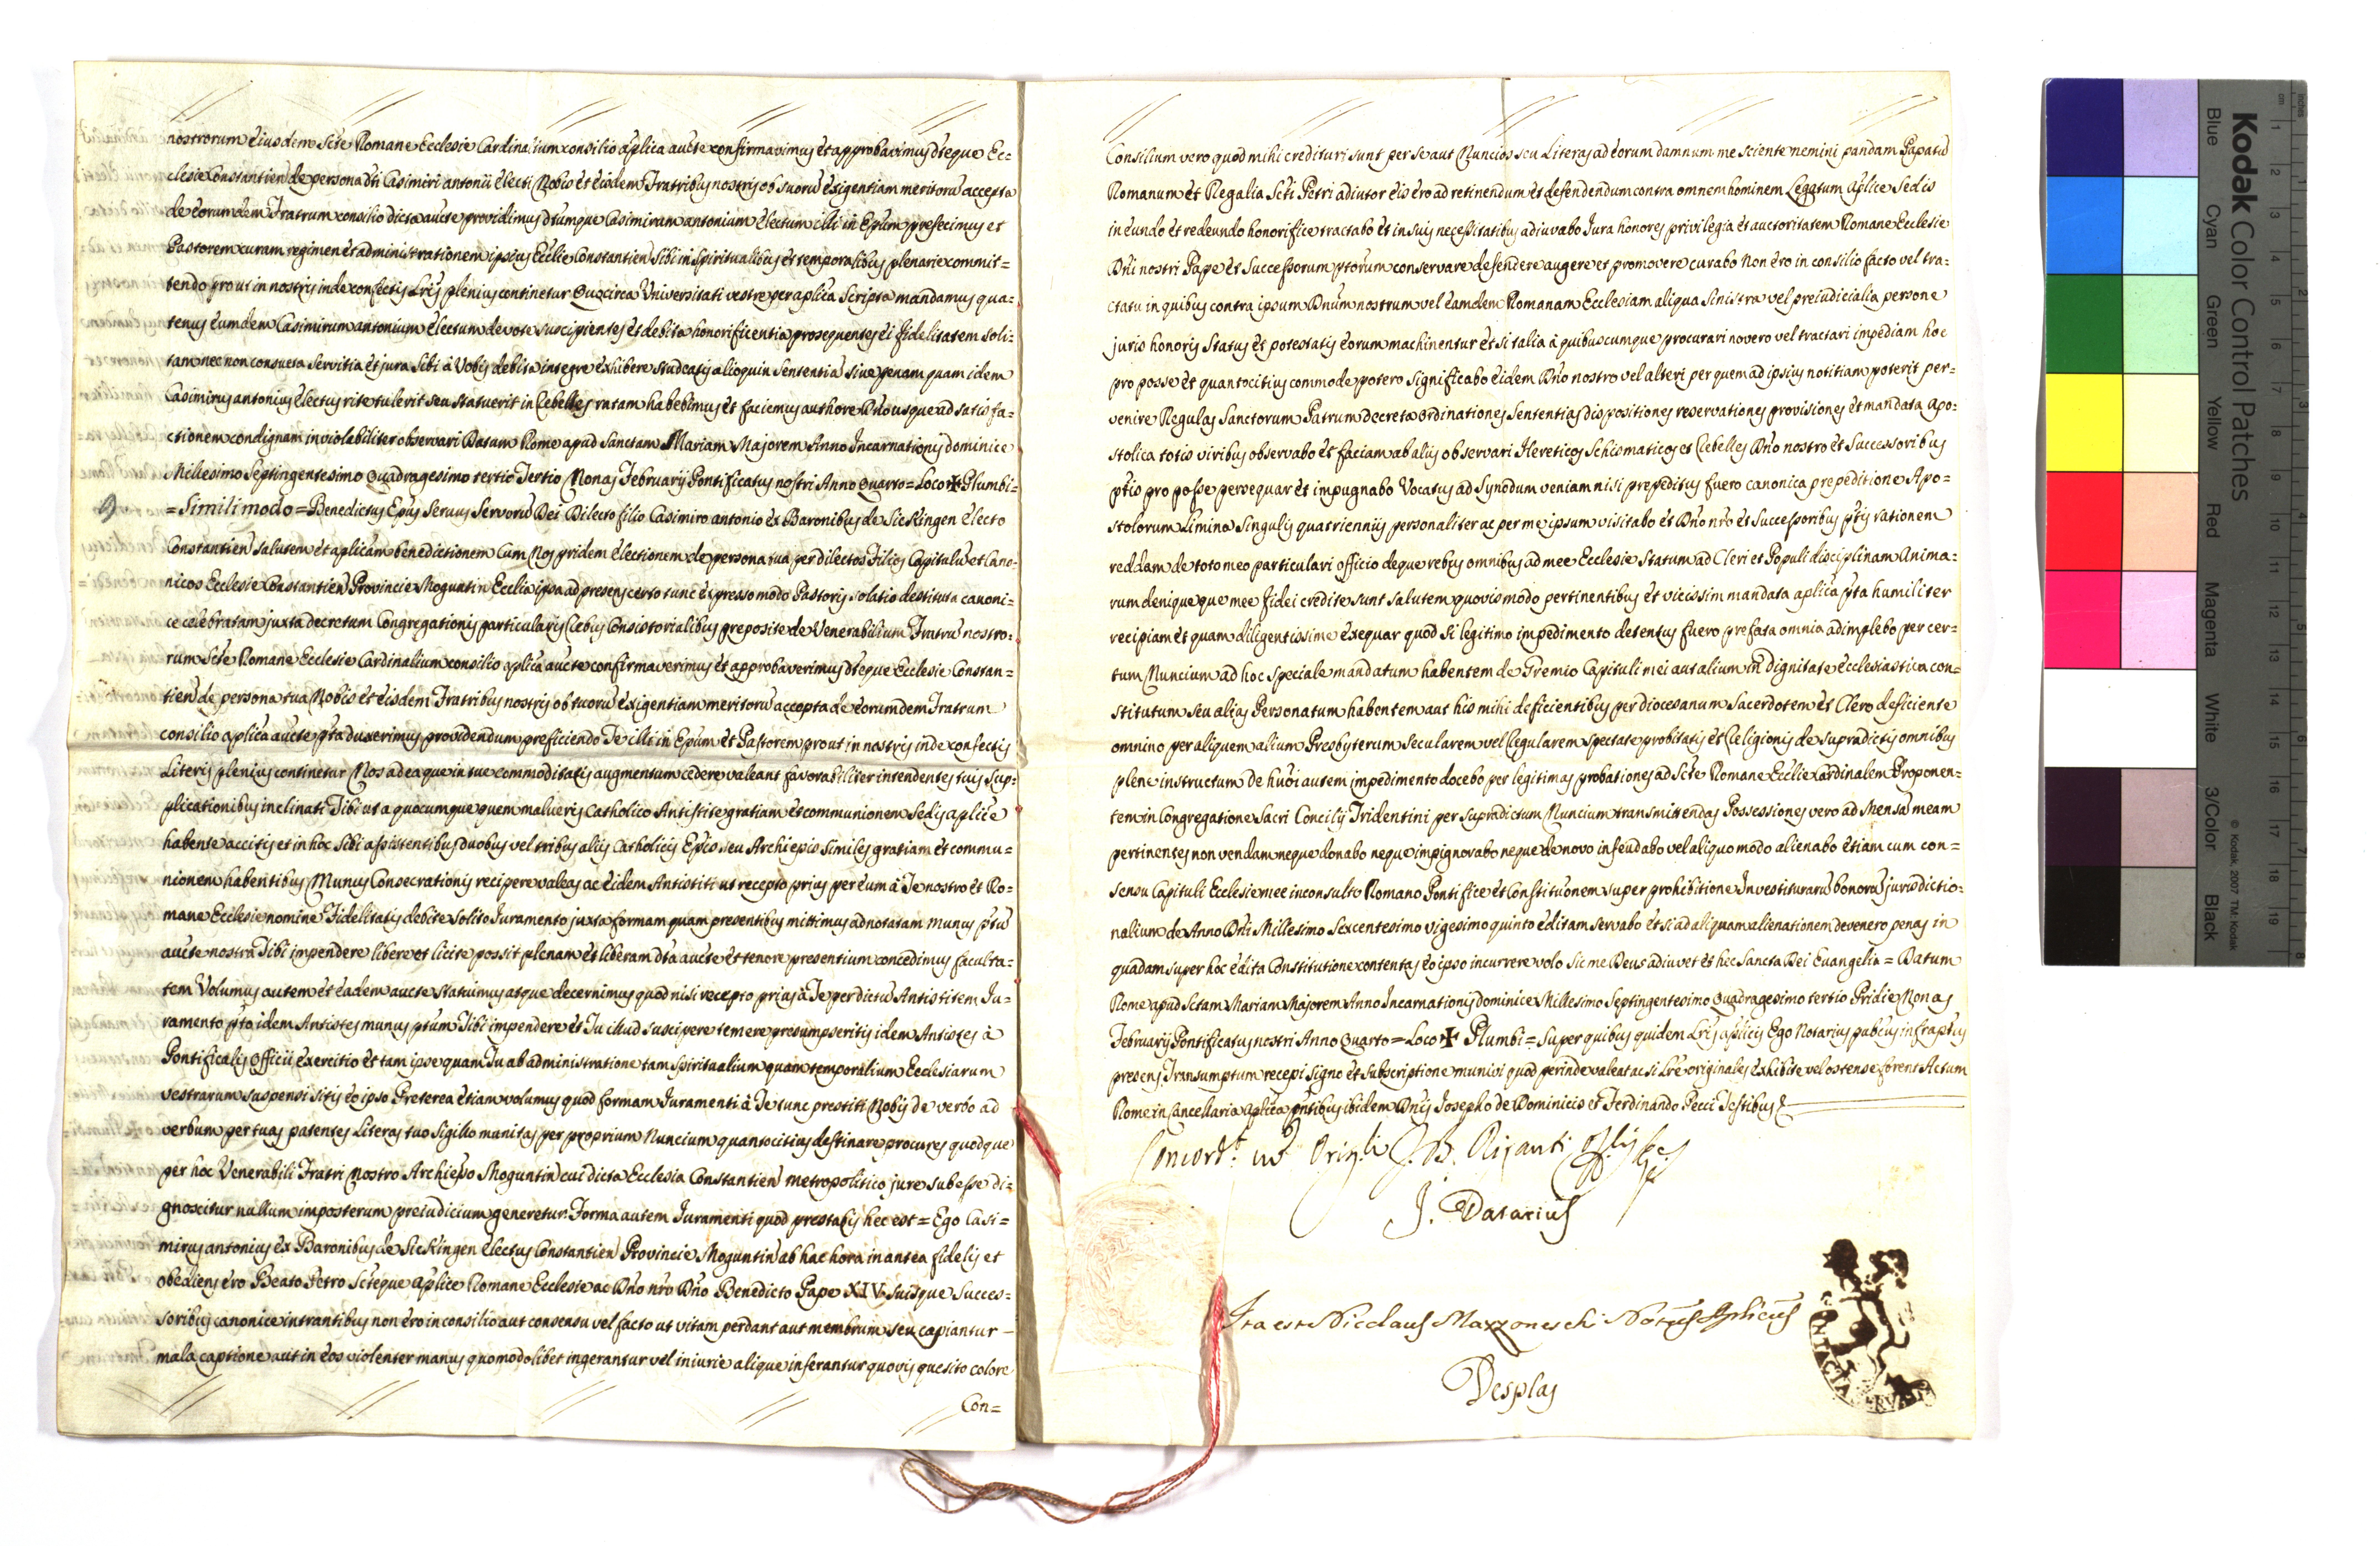 nostrorum eiusdem Scte Romane Ecclesie Cardinalium consilio aplica aucte confirmavimus et approbavimus dteque Ec=
clesie Constantien de persona dti Casimiri antonii electi Nobis et eisdem Fratribus nostris ob suorū exigentiam meritorū accepta
de eorumdem Fratrum consilio dicta aucte providimus dtumque Casimirum antonium electum illi in Epum prefecimus et
Pastorem curam regimen et administrationem ipsius Ecclie Constantien sibi in Spiritualibus et temporalibus plenarie commit=
tendo prout in nostris inde confectis Lris plenius continetur Quocirca Universitati vestre per aplica Scripta mandamus qua=
tenus eumdem Casimirum antonium electum devote suscipientes et debita honorificentia prosequentes ei fidelitatem soli=
tam nec non consueta servitia et jura sibi à Vobis debita integre exhibere studeatis alioquin sententiā sive penam quam idem
Casimirus antonius electus rite tulerit seu statuerit in Rebelles ratam habebimus et faciemus authore Dño usque ad satisfa=
ctionem condignam inviolabiliter observari Datum Rome apud Sanctam Mariam Majorem Anno Incarnationis dominice
Millesimo Septingentesimo Quadragesimo tertio Tertio Nonas Februarij Pontificatus nostri Anno Quarto = Loco ✠ Plumbi=
= Simili modo = Benedictus Epus Servus Servorū Dei Dilecto filio Casimiro antonio ex Baronibus de Sickingen electo
Constantien salutem et aplicam benedictionem Cum Nos pridem electionem de persona tua per dilectos Filios Capitulū et Cano=
nicos Ecclesie Constantien Provincie Moguntin Ecclia ipsa ad presens certo tunc expresso modo Pastoris solatio destituta canoni=
ce celebratam juxta decretum Congregationis particularis Rebus Consistorialibus preposite de Venerabilium Fratrū nostro=
rum Scte Romane Ecclesie Cardinalium consilio aplica aucte confirmaverimus et approbaverimus dteque Ecclesie Constan=
tien de persona tua Nobis et eisdem Fratribus nostris ob tuorū exigentiam meritorū accepta de eorumdem Fratrum
consilio aplica aucte pta duxerimus providendum preficiendo Te illi in Epum et Pastorem prout in nostris inde confectis
Literis plenius continetur Nos ad ea que in tue commoditatis augmentum cedere valeant favorabiliter intendentes tuis sup=
plicationibus inclinati Tibi ut a quocumque quem malueris Catholico Antistite gratiam et communionem Sedis aplice
habente accitis et in hoc sibi assistentibus duobus vel tribus aliis Catholicis Epis seu Archiepis similes gratiam et commu=
nionem habentibus Munus Consecrationis recipere valeas ac eidem Antistiti ut recepto prius per eum à Te nostro et Ro=
mane Ecclesie nomine Fidelitatis debite solito Juramento juxta formam quam presentibus mittimus adnotatam munus ptū
aucte nostra Tibi impendere libere et licite possit plenam et liberam dta aucte et tenore presentium concedimus faculta=
tem Volumus autem et eadem aucte statuimus atque decernimus quod nisi recepto prius à Te per dictū Antistitem Ju=
ramento pto idem Antistes munus ptum Tibi impendere et Tu illud suscipere temere presumpseritis idem Antistes à
Pontificalis Officii exercitio et tam ipse quam Tu ab administratione tam spiritualium quam temporalium Ecclesiarum
vestrarum suspensi sitis eo ipso Preterea etiam volumus quod formam Juramenti à Te tunc prestiti Nobis de verbo ad
verbum per tuas patentes Literas tuo Sigillo munitas per proprium Nuncium quantocitius destinare procures quodque
per hoc Venerabili Fratri Nostro Archiepo Moguntin cui dicta Ecclesia Constantien metropolitico jure subesse di=
gnoscitur nullum imposterum preiudicium generetur. Forma autem Juramenti quod prestabis hec est = Ego Casi=
mirus antonius ex Baronibus de Sickingen electus Constantien Provincie Moguntin ab hac hora in antea fidelis et
obediens ero Beato Petro Scteque aplice Romane Ecclesie ac Dño nro Dño Benedicto Pape XIV. Suisque Succes=
soribus canonice intrantibus non ero in consilio aut consensu vel facto ut vitam perdant aut membrum seu capiantur
mala captione aut in eos violenter manus quomodolibet ingerantur vel iniurie alique inferantur quovis quesito colore
Con=
Consilium vero quod mihi credituri sunt per se aut Nuncios seu Literas ad eorum damnum me sciente nemini pandam Papatū
Romanum et Regalia Scti Petri adiutor eis ero ad retinendum et defendendum contra omnem hominem Legatum aplice Sedis
in eundo et redeundo honorifice tractabo et in suis necessitatibus adiuvabo Jura honores privilegia et auctoritatem Romane Ecclesie
Dñi nostri Pape et Successorum ptorum conservare defendere augere et promovere curabo Non ero in consilio facto vel tra=
ctatu in quibus contra ipsum Dnum nostrum vel eamdem Romanam Ecclesiam aliqua sinistra vel preiudicialia persone
juris honoris Status et potestatis eorum machinentur et si talia à quibuscumque procurari novero vel tractari impediam hoc
pro posse et quantocitius commode potero significabo eidem Dño nostro vel alteri per quem ad ipsius notitiam poterit per=
venire Regulas Sanctorum Patrum decreta ordinationes sententias dispositiones reservationes provisiones et mandata apo=
stolica totis viribus observabo et faciam ab aliis observari Hereticos Schismaticos et Rebelles Dño nostro et Successoribus
ptis pro posse persequar et impugnabo Vocatus ad Synodum veniam nisi prepeditus fuero canonica prepeditione Apo=
stolorum Limina Singulis quatrienniis personaliter ac per me ipsum visitabo et Dño nro et Successoribus ptis rationem
reddam de toto meo particulari officio deque rebus omnibus ad mee Ecclesie Statum ad Cleri et Populi disciplinam anima=
rum denique que mee fidei credite sunt salutem quovis modo pertinentibus et vicissim mandata aplica pta humiliter
recipiam et quam diligentissime exequar quod si legitimo impedimento detentus fuero prefata omnia adimplebo per cer=
tum Nuncium ad hoc speciale mandatum habentem de Gremio Capituli mei aut alium in dignitate ecclesiastica con=
stitutum seu alias Personatum habentem aut his mihi deficientibus per diocesanum Sacerdotem et Clero deficiente
omnino per aliquem alium Presbyterum Secularem vel Regularem spectate probitatis et Religionis de supradictis omnibus
plene instructum De huōi autem impedimento docebo per legitimas probationes ad Scte Romane Ecclie Cardinalem Proponen=
tem in Congregatione Sacri Concilij Tridentini per Supradictum Nuncium transmittendas Possessiones vero ad Mensā meam
pertinentes non vendam neque donabo neque impignorabo neque de novo infeudabo vel aliquo modo alienabo etiam cum con=
sensu Capituli Ecclesie mee inconsulto Romano Pontifice et Constituonem super prohibitione Investiturarū bonorū jurisdictio=
nalium de Anno Dñi Millesimo Sexcentesimo vigesimo quinto editam servabo et si ad aliquam alienationem devenero penas in
quadam super hoc edita Constitutione contentas eo ipso incurrere volo sic me Deus adiuvet et hec Sancta Dei Evangelia = Datum
Rome apud Sctam Mariam Majorem Anno Incarnationis dominice Millesimo Septingentesimo Quadragesimo tertio Pridie Nonas
Februarij Pontificatus nostri Anno Quarto = Loco ✠ Plumbi = Super quibus quidem Lris aplicis Ego Notarius pubcus infraptus
presens Transumptum recepi signo et Subscriptione munivi quod perinde valeat ac si Lre originales exhibite vel ostense forent Actum
Rome in Cancellaria aplica pntibus ibidem Dnis Josepho de Dominicis et Ferdinando Pecci Testibus &
Concordt. cū Origli J. B. Riganti
J. Datarius
Ita est Nicolaus Mazzoneschi Notus Aplicus
Desplas
Kodak Color Control Patches
Blue Cyan Green Yellow Red Magenta White 3/Color Black
© Kodak, 2007 TM: Kodak
inches 1 2 3 4 5 6 7 8
cm 1 2 3 4 5 6 7 8 9 10 11 12 13 14 15 16 17 18 19